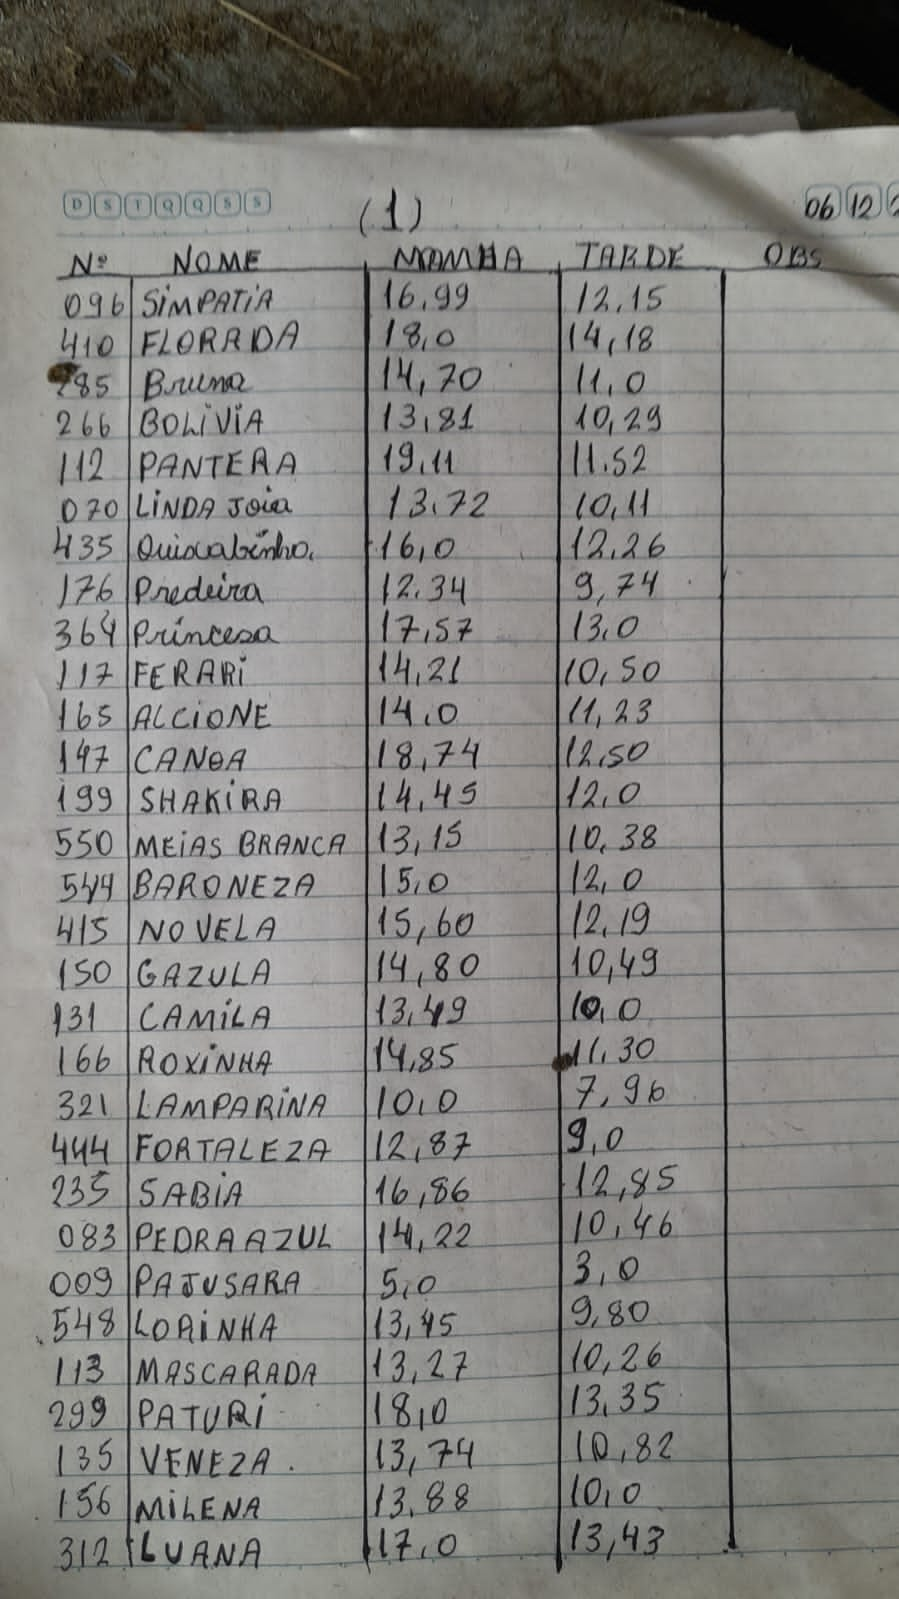 D S T Q Q S S
(1) 06 12
Nº NOME MAMHA TARDE OBS
096 SiMPATiA 16,99 12,15
410 FLORADA 18,0 14,18
285 Bruna 14,70 11,0
266 BOLiViA 13,81 10,29
112 PANTERA 19,11 11,52
070 LiNDA Joia 13,72 10,11
435 16,0 12,26
176 Predeira 12,34 9,74
364 Princesa 17,57 13,0
117 FERARi 14,21 10,50
165 ALCiONE 14,0 11,23
147 CANOA 18,74 12,50
199 SHAKiRA 14,45 12,0
550 MEiAS BRANCA 13,15 10,38
544 BARONEZA 15,0 12,0
415 NOVELA 15,60 12,19
150 GAZULA 14,80 10,49
131 CAMiLA 13,49 10,0
166 ROXiNHA 14,85 11,30
321 LAMPARiNA 10,0 7,96
444 FORTALEZA 12,87 9,0
235 SABiA 16,86 12,85
083 PEDRA AZUL 14,22 10,46
009 PAJUSARA 5,0 3,0
548 LORiNHA 13,45 9,80
113 MASCARADA 13,27 10,26
299 PATURi 18,0 13,35
135 VENEZA 13,74 10,82
156 MiLENA 13,88 10,0
312 LUANA 17,0 13,43